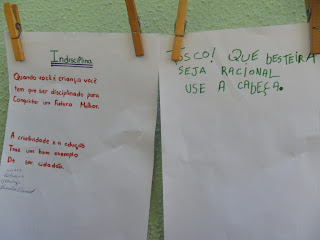 Indisciplina
Quando você é criança você
tem que ser disciplinado para
Conquistar um Futuro Melhor.
A criatividade e a educação
Traz um bom exemplo
De ser cidadão.
TOSCO! QUE BESTEIRA
SEJA RACIONAL
USE A CABEÇA.